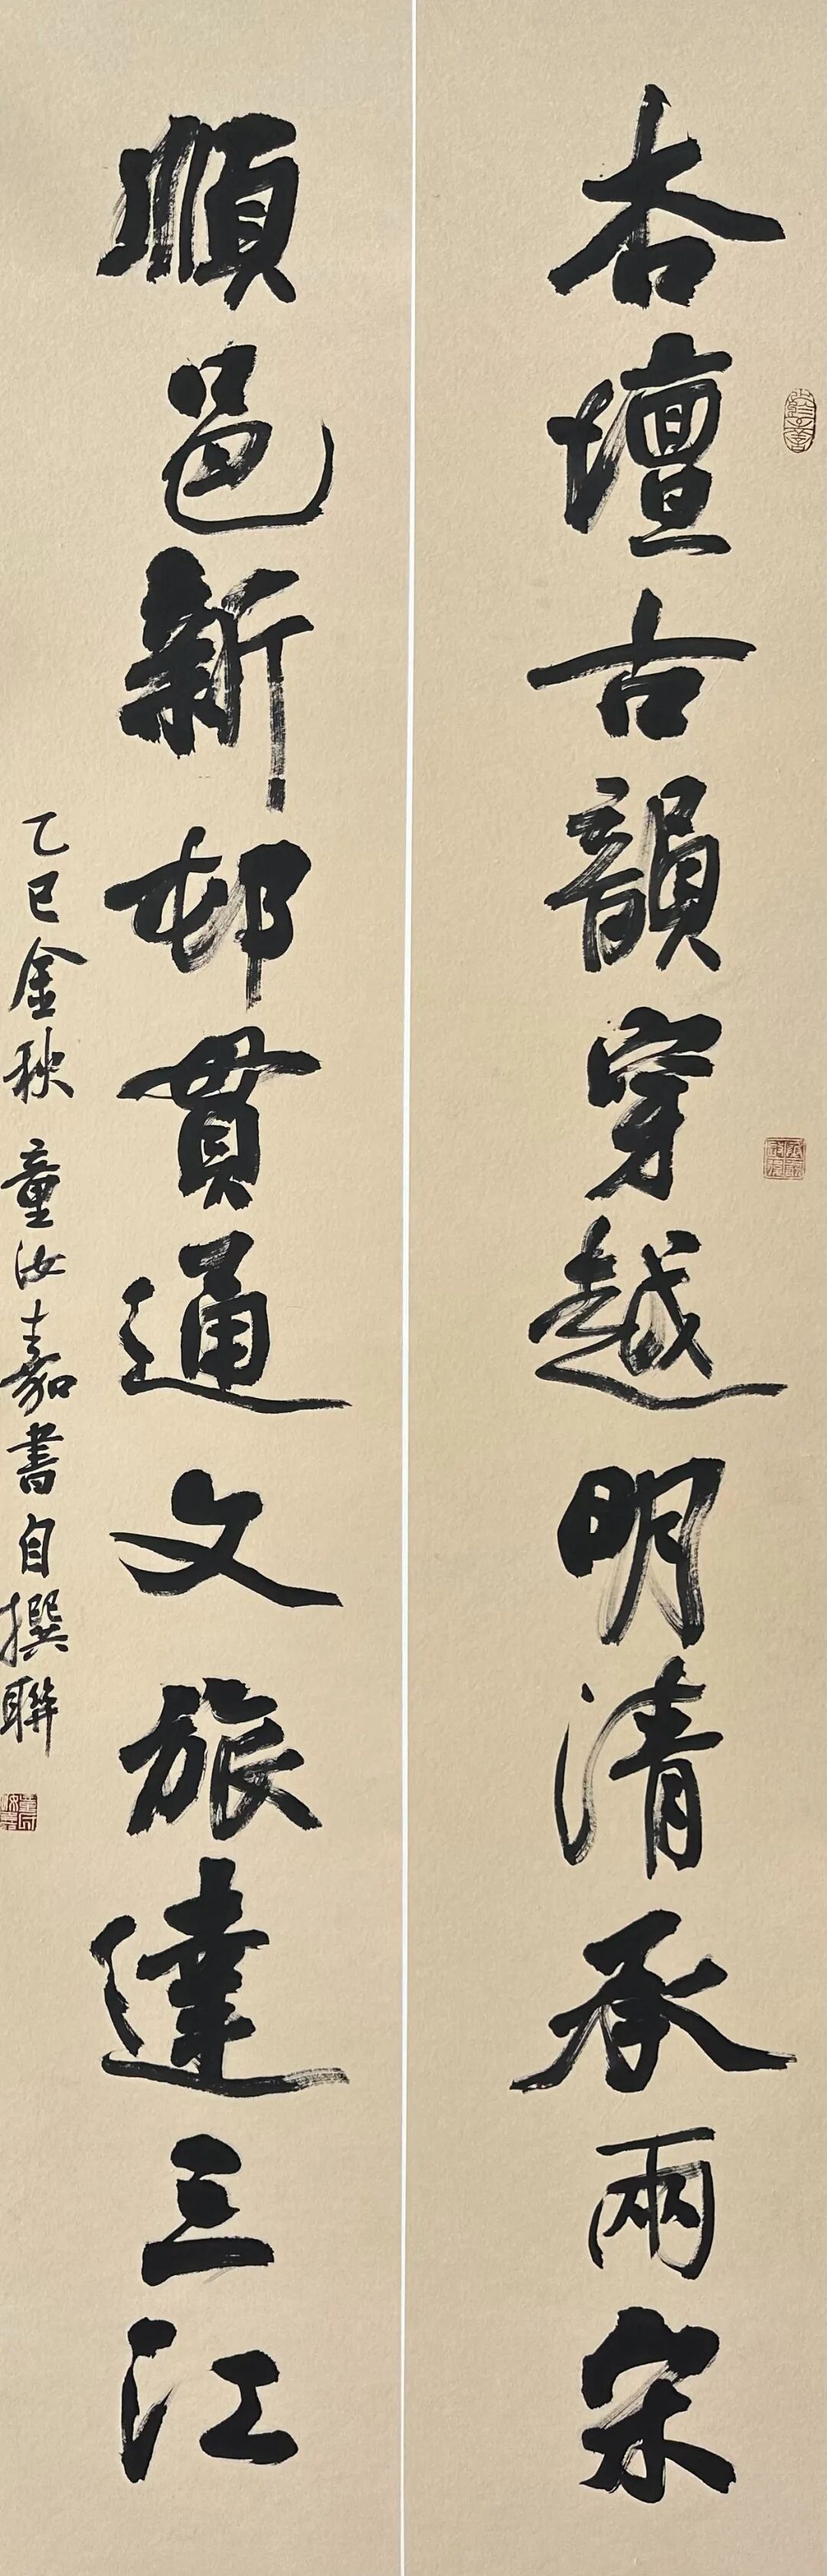 杏壇古韻穿越明清承兩宋
順邑新邨貫通文旅達三江
乙巳金秋 童汝嘉書自撰聯